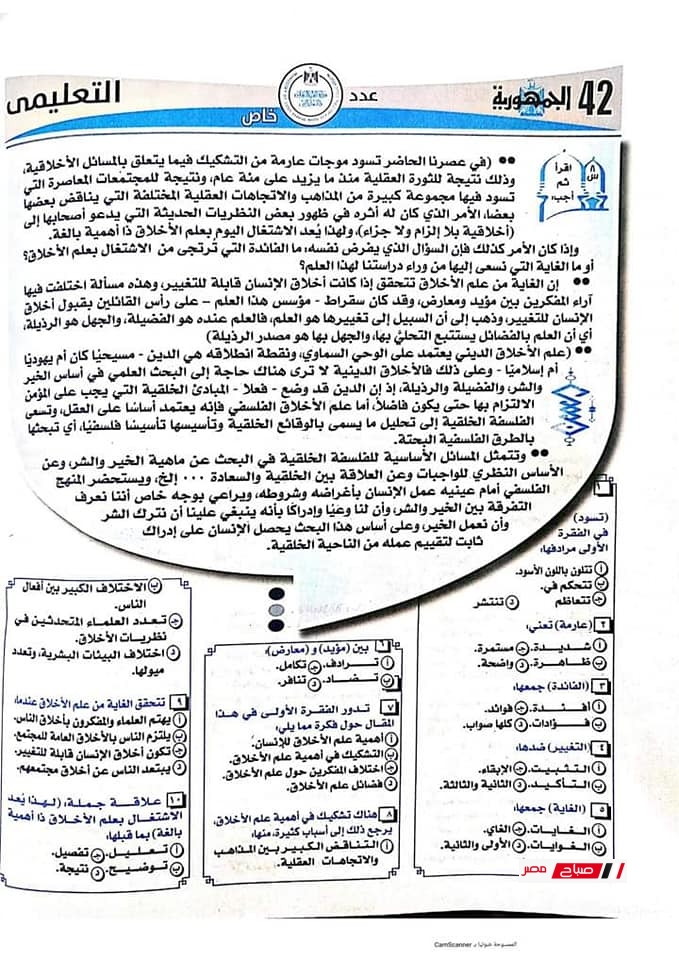 42 الجمهورية
عدد
خاص
التعليمى
اقرأ
ثم
أجب:
●● (في عصرنا الحاضر تسود موجات عارمة من التشكيك فيما يتعلق بالمسائل الأخلاقية،
وذلك نتيجة للثورة العقلية منذ ما يزيد على مئة عام، ونتيجة للمجتمعات المعاصرة التي
تسود فيها مجموعة كبيرة من المذاهب والاتجاهات العقلية المختلفة التي يناقض بعضها
بعضا، الأمر الذي كان له أثره في ظهور بعض النظريات الحديثة التي يدعو أصحابها إلى
(أخلاقية بلا إلزام ولا جزاء)، ولهذا يُعد الاشتغال اليوم بعلم الأخلاق ذا أهمية بالغة.
وإذا كان الأمر كذلك فإن السؤال الذي يفرض نفسه: ما الفائدة التي ترتجى من الاشتغال بعلم الأخلاق؟
أو ما الغاية التي نسعى إليها من وراء دراستنا لهذا العلم؟
●● إن الغاية من علم الأخلاق تتحقق إذا كانت أخلاق الإنسان قابلة للتغيير، وهذه مسألة اختلفت فيها
آراء المفكرين بين مؤيد ومعارض، وقد كان سقراط - مؤسس هذا العلم – على رأس القائلين بقبول أخلاق
الإنسان للتغيير، وذهب إلى أن السبيل إلى تغييرها هو العلم، فالعلم عنده هو الفضيلة، والجهل هو الرذيلة،
أي أن العلم بالفضائل يستتبع التحلّي بها، والجهل بها هو مصدر الرذيلة)
●● (علم الأخلاق الديني يعتمد على الوحي السماوي، ونقطة انطلاقه هي الدين - مسيحيًا كان أم يهوديًا
أم إسلاميًا - وعلى ذلك فالأخلاق الدينية لا ترى هناك حاجة إلى البحث العلمي في أساس الخير
والشر، والفضيلة والرذيلة، إذ إن الدين قد وضع - فعلا - المبادئ الخلقية التي يجب على المؤمن
الالتزام بها حتى يكون فاضلاً، أما علم الأخلاق الفلسفي فإنه يعتمد أساسًا على العقل، وتسعى
الفلسفة الخلقية إلى تحليل ما يسمى بالوقائع الخلقية وتأسيسها تأسيسًا فلسفيًا، أي تبحثها
بالطرق الفلسفية البحتة.
●● وتتمثل المسائل الأساسية للفلسفة الخلقية في البحث عن ماهية الخير والشر، وعن
الأساس النظري للواجبات وعن العلاقة بين الخلقية والسعادة ٠٠٠ إلخ، ويستحضر المنهج
الفلسفي أمام عينيه عمل الإنسان بأغراضه وشروطه، ويراعي بوجه خاص أننا نعرف
التفرقة بين الخير والشر، وأن لنا وعيًا وإدراكًا بأنه ينبغي علينا أن نترك الشر
وأن نعمل الخير، وعلى أساس هذا البحث يحصل الإنسان على إدراك
ثابت لتقييم عمله من الناحية الخلقية.
١
(تسود)
في الفقرة
الأولى مرادفها:
أ تتلون باللون الأسود.
ب تتحكم في.
ج تتعاظم د تنتشر
٢ (عارمة) تعني:
أ شديدة. ج مستمرة.
ب ظاهرة. د واضحة.
٣ (الفائدة) جمعها:
أ أفئدة. ج فوائد.
ب فؤادات. د كلها صواب.
٤ (التغيير) ضدها:
أ التثبيت. ج الإبقاء.
ب التأكيد. د الثانية والثالثة.
٥ (الغاية) جمعها:
أ الغايات. ج الغاي.
ب الغوايات. د الأولى والثانية.
٦ بين (مؤيد) و (معارض):
أ ترادف. ج تكامل.
ب تضاد. د تنافر.
٧ تدور الفقرة الأولى في هذا
المقال حول فكرة مما يلي:
أ أهمية علم الأخلاق للإنسان.
ب التشكيك في أهمية علم الأخلاق.
ج اختلاف المفكرين حول علم الأخلاق.
د فضائل علم الأخلاق.
٨ هناك تشكيك في أهمية علم الأخلاق،
يرجع ذلك إلى أسباب كثيرة، منها:
أ التناقض الكبير بين المذاهب
والاتجاهات العقلية.
ب الاختلاف الكبير بين أفعال
الناس.
ج تعدد العلماء المتحدثين في
نظريات الأخلاق.
د اختلاف البيئات البشرية، وتعدد
ميولها.
٩ تتحقق الغاية من علم الأخلاق عندما:
أ يهتم العلماء والمفكرون بأخلاق الناس.
ب يلتزم الناس بالأخلاق العامة للمجتمع.
ج تكون أخلاق الإنسان قابلة للتغيير.
د يبتعد الناس عن أخلاق مجتمعهم.
١٠ علاقة جملة: (لهذا يُعد
الاشتغال بعلم الأخلاق ذا أهمية
بالغة) بما قبلها:
أ تعليل. ج تفصيل.
ب توضيح. د نتيجة.
صباح مصر
الممسوحة ضوئيا بـ CamScanner